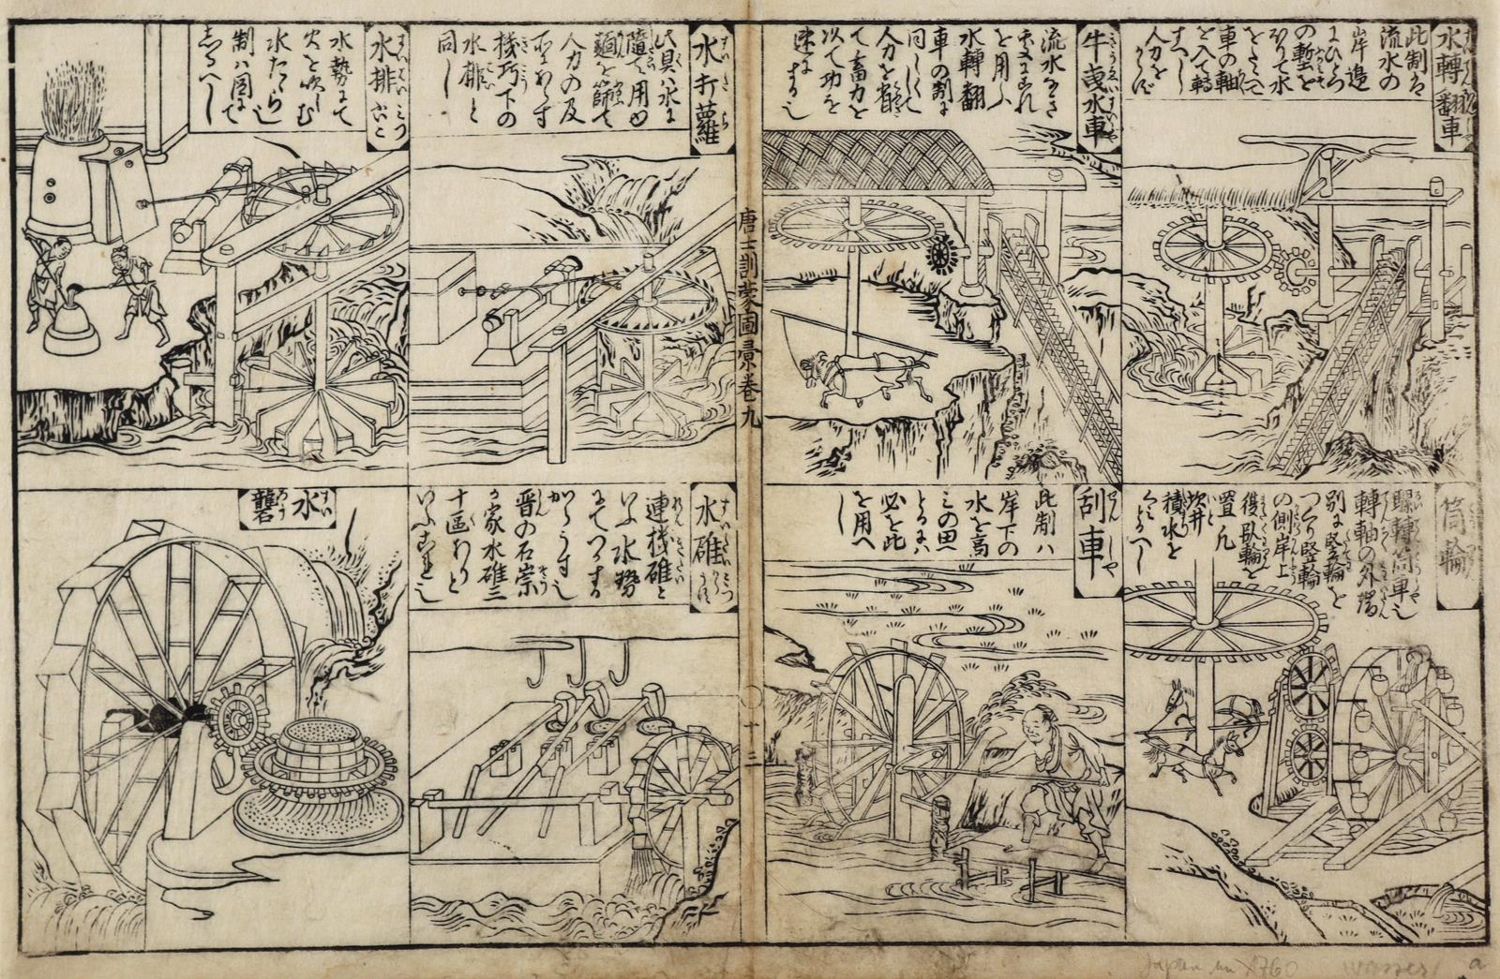 水轉翻車
此制は
流水の
岸邊
にひとつ
の塹を
ほりて水
車の軸
を入て轉
人力を
からず
牛曳水車
流水なき
を用ふ
水轉翻
車の制に
同じくして
人力を省
て畜力を
以て功を
速にする也
筒輪
驢轉筒車也
轉軸の外端
別に竪輪を
つくり竪輪
の側岸上
後臥輪を
置凡
坎井
積水を
刮車
此制ハ
岸下の
水を高
きの田へ
とるにハ
必を此
を用へ
し
唐土訓蒙圖彙巻九
十三
水打羅
此具ハ水に
隨て用ゆ
麺を篩て
人力の及
所にあらず
機巧下の
水排と
同し
水排
水勢にて
火を吹しむ
水たゝら也
制ハ図にて
しるへし
水碓
連機碓と
いふ水勢
からうす也
晋の石崇
が家水碓三
十區ありと
いふこれ也
水礱
Japan um 1760